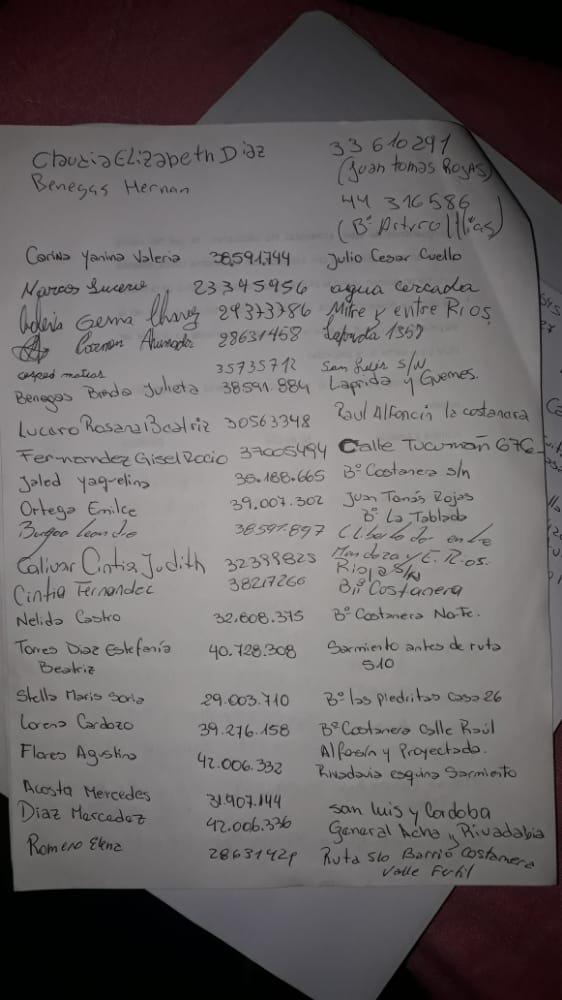 Claudia Elizabeth Diaz 33610291
(Juan tomas Rojas)
Benegas Hernan 44 316586
(Bº Arturo Illias)
Carina Yanina Valeria 38,591,744 Julio Cesar Cuello
Marcos Lucero 23345956 agua cercada
Gema Chavez 29373786 Mitre y entre Rios
Carmen Ahumada 28631458 1359
matias 35735712 San Luis s/N
Benegas Brenda Julieta 38591.884 Laprida y Guemes.
Lucero Rosana Beatriz 30563348 Raul Alfoncin la costanara
Fernandez Gisel Rocio 37005494 Calle Tucumañ 676
Jaled Yaquelina 36.188.665 Bº Costanera s/n
Ortega Emilce 39.007.302 Juan Tomás Rojas
Bº La Tablada
38591.897 Libertador entre
Mendoza y E. Rios.
Calivar Cintia Judith 32399825 Rioja S/N
Cintia Fernandez 38217266 Bº Costanera
Nelida Castro 32.608.375 Bº Costanera Norte.
Torres Diaz Estefania 40.728.308 Sarmiento antes de ruta
Beatriz 510
Stella Maris Soria 29.003.710 Bº las piedritas casa 26
Lorena Cardozo 39.276.158 Bº Costanera Calle Raúl
Alfonsín y Proyectada.
Flores Agustina 42.006.332 Rivadavia esquina Sarmiento
Acosta Mercedes 31.907.144 san Luis y Cordoba
Diaz Mercedez 42.006.336 General Acha y Rivadabia
Romero Elena Ruta 510 Barrio Costanera
Valle Fertil